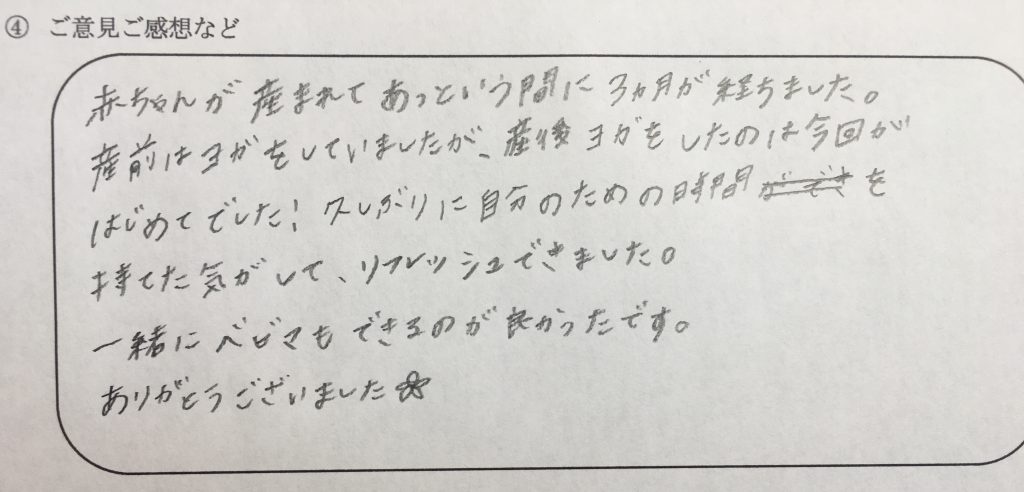 ④ ご意見ご感想など
赤ちゃんが産まれてあっという間に3ヵ月が経ちました。
産前はヨガをしていましたが、産後ヨガをしたのは今回が
はじめてでした! 久しぶりに自分のための時間ができを
持てた気がして、リフレッシュできました。
一緒にベビマもできるのが良かったです。
ありがとうございました